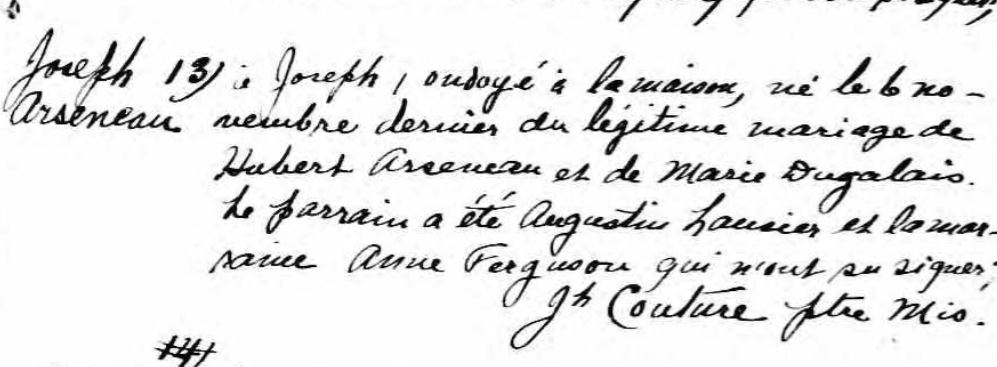 Joseph 13) à Joseph, ondoyé à la maison, né le 6 no-
Arseneau vembre dernier du légitime mariage de
Hubert Arseneau et de Marie Dugalais.
Le parrain a été Augustin Lausier et la mar-
raine Anne Ferguson qui n'ont su signer;
Jh Couture ptre Mis.
141